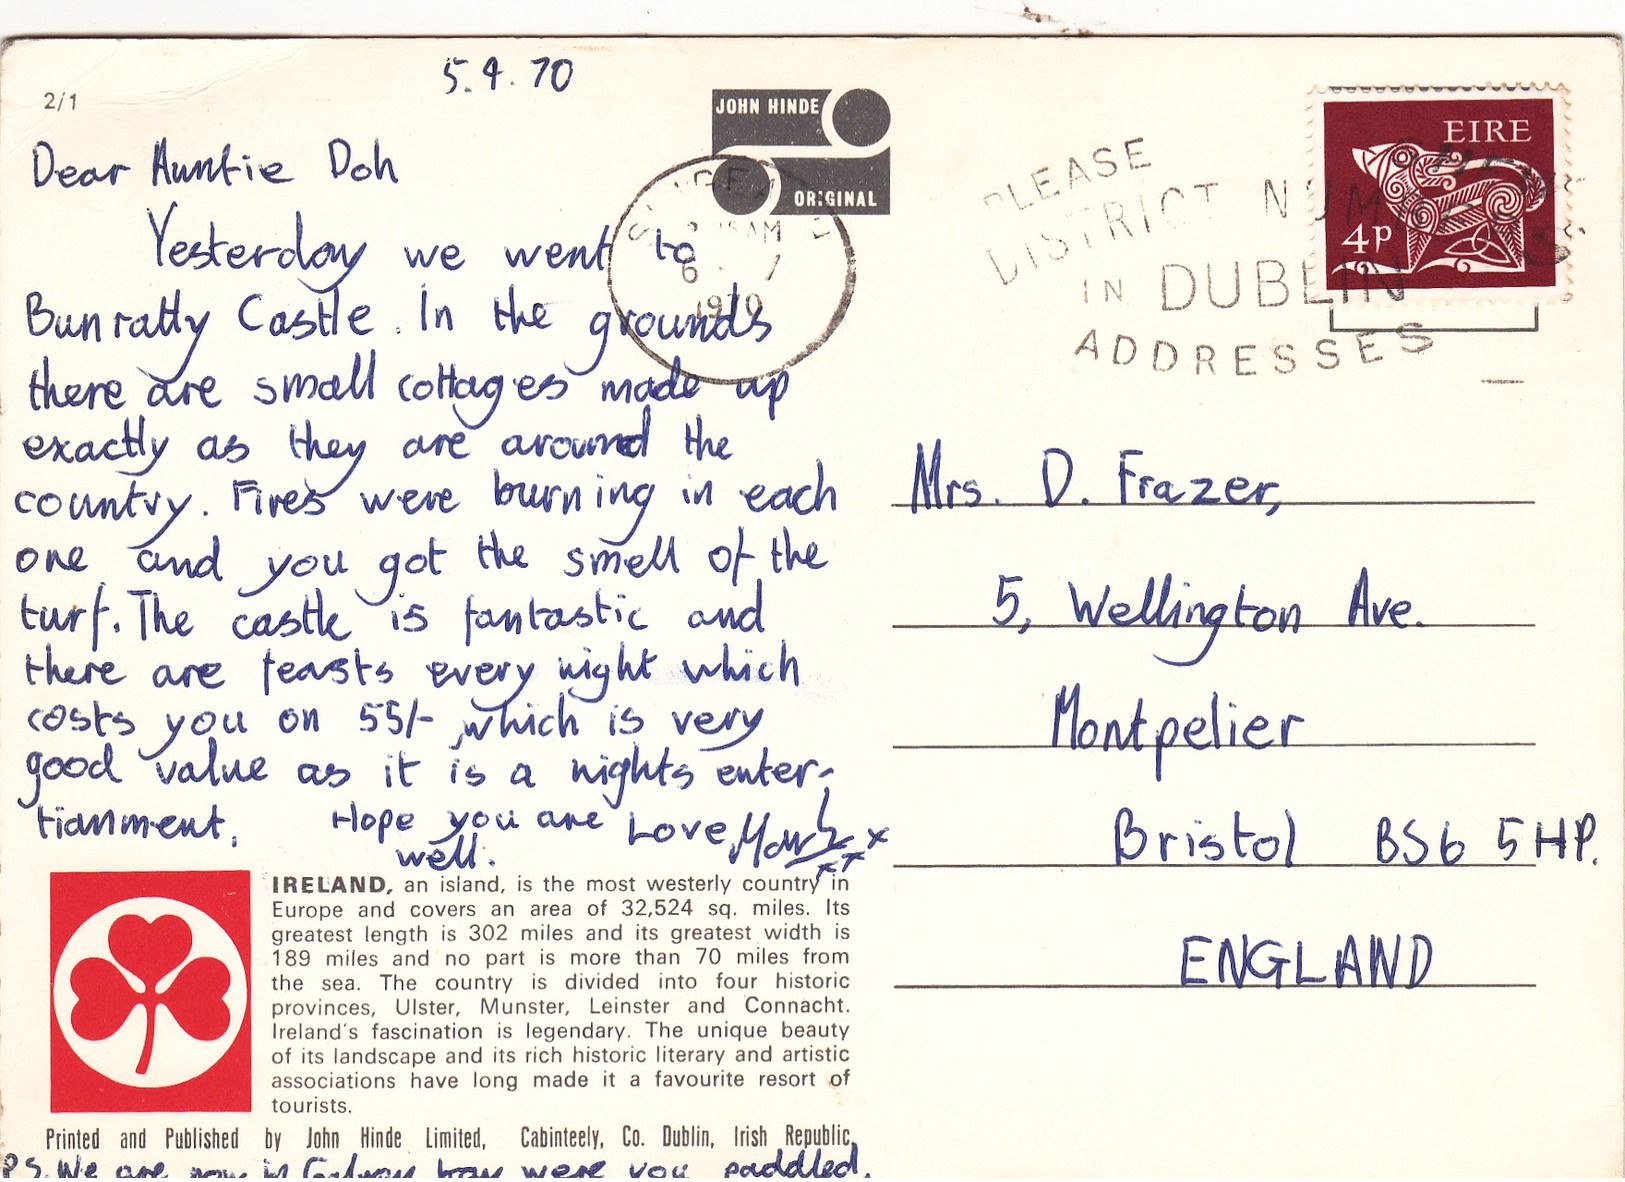 5.4.70
2/1
JOHN HINDE
ORIGINAL
Dear Auntie Doh
Yesterday we went to
Bunratty Castle. In the grounds
there are small cottages made up
exactly as they are around the
country. Fires were burning in each
one and you got the smell of the
turf. The castle is fantastic and
there are feasts every night which
costs you on 55/- , which is very
good value as it is a nights enter-
tianment. Hope you are
well.
Love,
xxx
IRELAND, an island, is the most westerly country in
Europe and covers an area of 32,524 sq. miles. Its
greatest length is 302 miles and its greatest width is
189 miles and no part is more than 70 miles from
the sea. The country is divided into four historic
provinces, Ulster, Munster, Leinster and Connacht.
Ireland's fascination is legendary. The unique beauty
of its landscape and its rich historic literary and artistic
associations have long made it a favourite resort of
tourists.
Printed and Published by John Hinde Limited, Cabinteely, Co. Dublin, Irish Republic.
P.S. We are now in Galway bay were you paddled.
1970
PLEASE
DISTRICT NUMBERS
IN DUBLIN
ADDRESSES
EIRE
4p
Mrs. D. Frazer,
5, Wellington Ave.
Montpelier
Bristol BS6 5HP.
ENGLAND